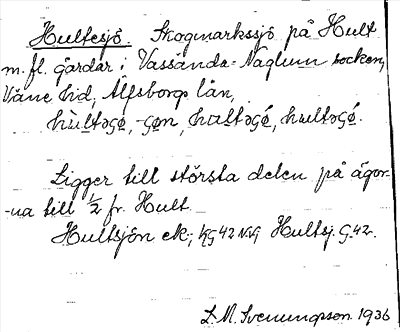 Hultesjö. Skogmarkssjö på Hult
m. fl. gårdar i Vassända-Naglum socken,
Väne hd, Älfsborgs län,
hùltəʂø, -ʂøn, haltəʂǿ, hultəʂǿ.
Ligger till största delen på ägor-
-na till 1/2 fr. Hult
Hultsjön ek; G 42 Hultsj. G. 42.
L. M. Svenungsson 1936